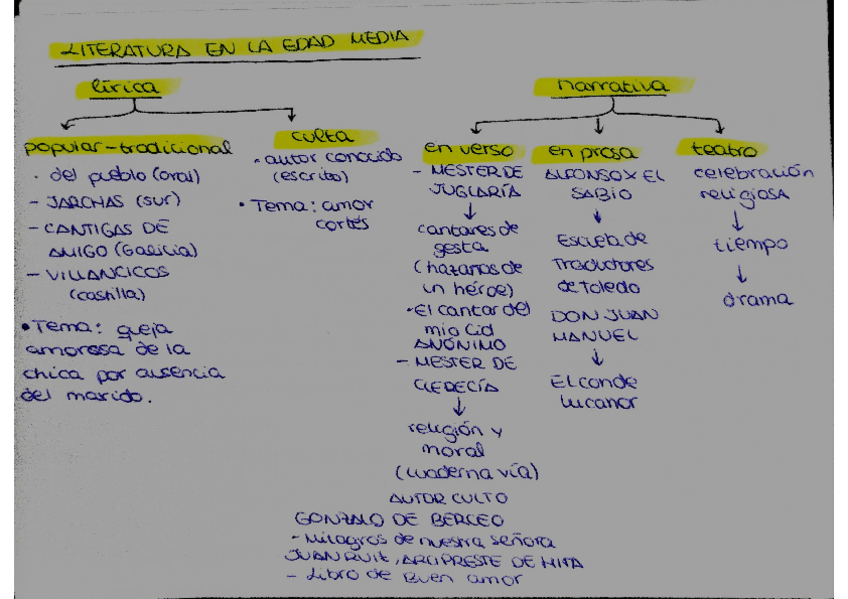 LITERATURA EN LA EDAD MEDIA
lírica
popular-tradicional
· del pueblo (oral)
- JARCHAS (sur)
- CANTIGAS DE
AMIGO (Galicia)
- VILLANCICOS
(castilla)
• Tema: queja
amorosa de la
chica por ausencia
del marido.
culta
- autor conocido
(escrito)
• Tema: amor
cortés
narrativa
en verso
- MESTER DE
JUGLARÍA
cantares de
gesta
(hazañas de
un héroe)
• El cantar del
mio Cid
ANÓNIMO
- MESTER DE
CLERECÍA
religión y
moral
(cuaderna vía)
AUTOR CULTO
GONZALO DE BERCEO
- Milagros de nuestra señora
JUAN RUIZ, ARCIPRESTE DE HITA
- Libro de Buen amor
en prosa
ALFONSO X EL
SABIO
Escuela de
Traductores
de Toledo
DON JUAN
MANUEL
El conde
Lucanor
teatro
celebración
religiosa
tiempo
drama